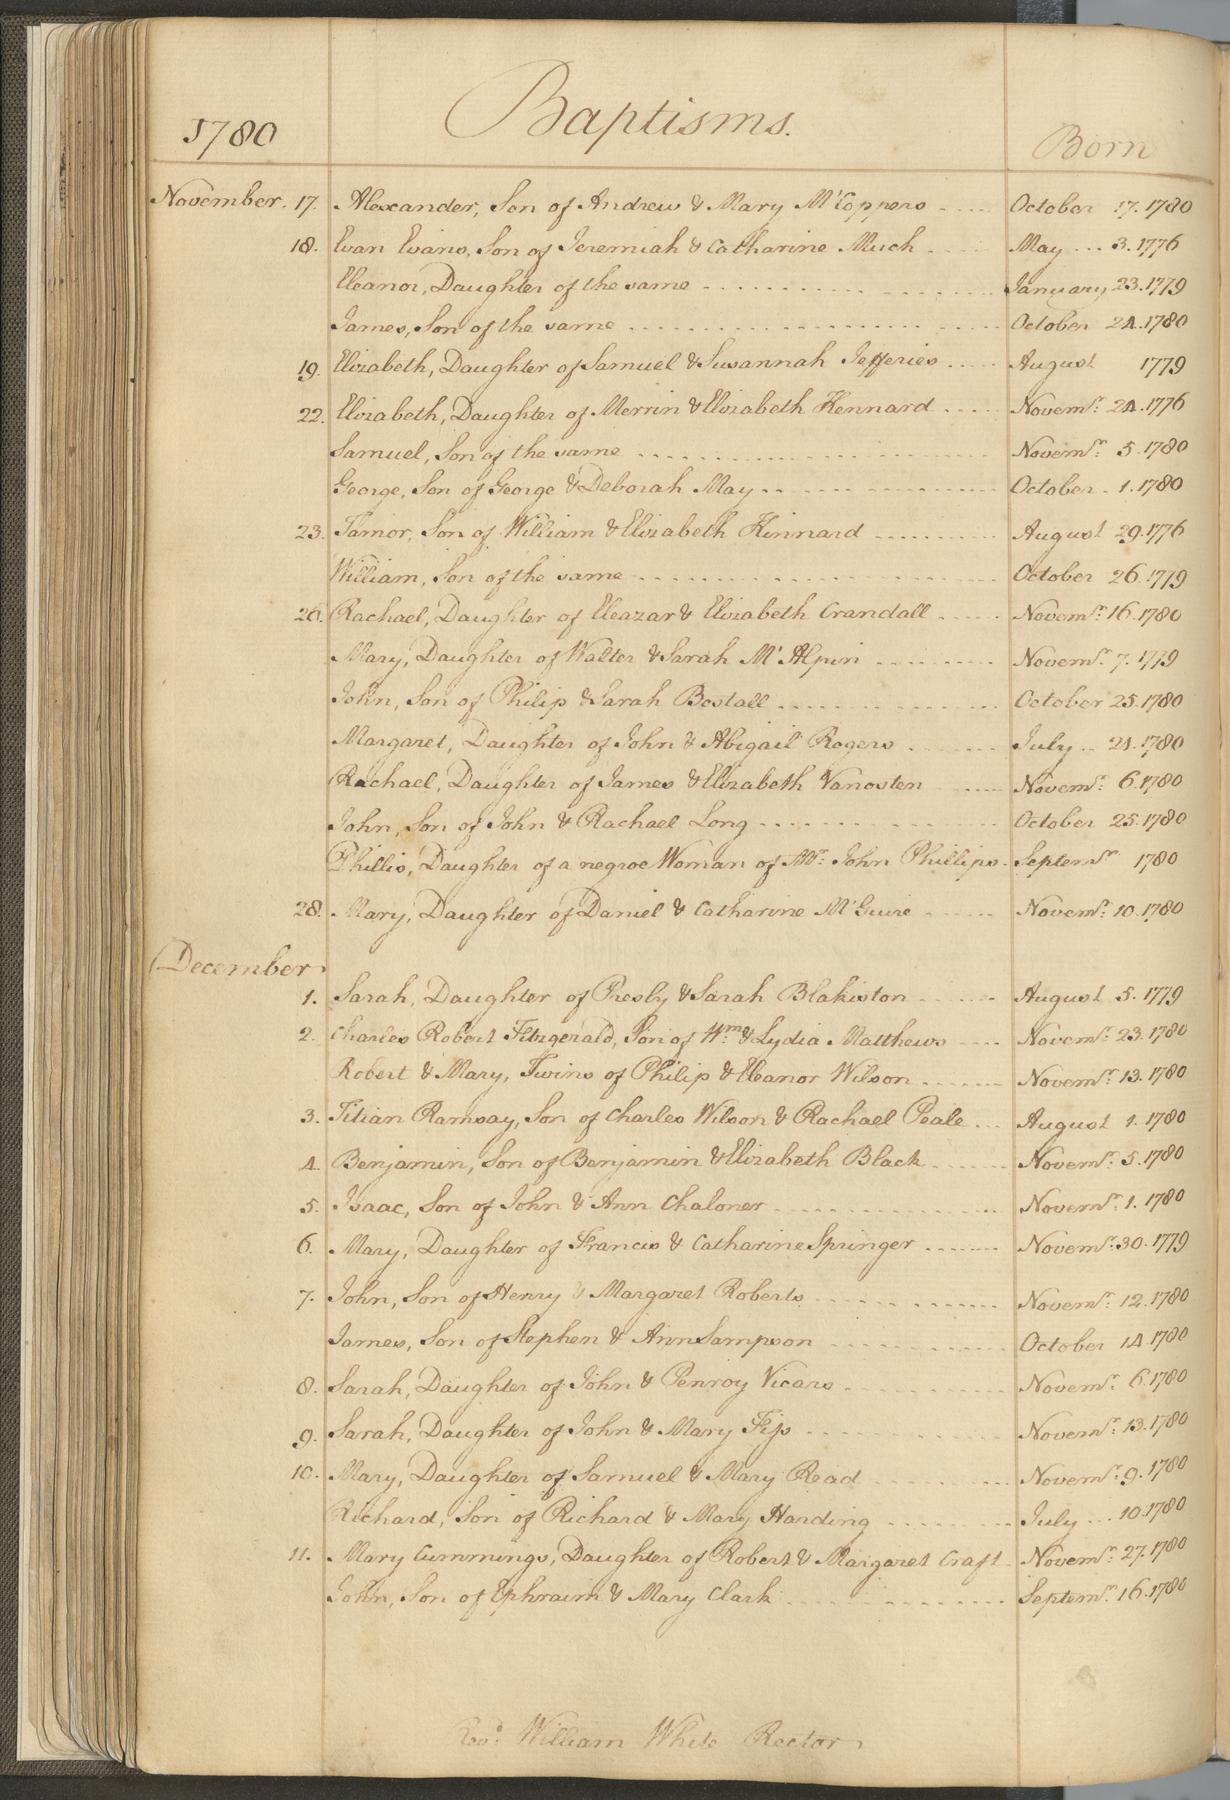 1780 Baptisms. Born
November. 17. Alexander, Son of Andrew & Mary M'Coppers October 17. 1780
18. Evan Evans, Son of Jeremiah & Catharine Much May 3. 1776
Eleanor, Daughter of the same January 23. 1779
James, Son of the same October 24. 1780
19. Elizabeth, Daughter of Samuel & Susannah Jefferies August 1779
22. Elizabeth, Daughter of Merrin & Elizabeth Kennard Novemr. 24. 1776
Samuel, Son of the same Novemr. 5. 1780
George, Son of George & Deborah May October 1. 1780
23. Tamor, Son of William & Elizabeth Kinnard August 29. 1776
William, Son of the same October 26. 1779
26. Rachael, Daughter of Eleazar & Elizabeth Crandall Novemr. 16. 1780
Mary, Daughter of Walter & Sarah M'Alpin Novemr. 7. 1779
John, Son of Philip & Sarah Bostall October 25. 1780
Margaret, Daughter of John & Abigail Rogers July 21. 1780
Rachael, Daughter of James & Elizabeth Vanosten Novemr. 6. 1780
John, Son of John & Rachael Long October 25. 1780
Phillis, Daughter of a negroe Woman of Mr. John Phillips Septemr. 1780
28. Mary, Daughter of Daniel & Catharine M'Guire Novemr. 10. 1780
December
1. Sarah, Daughter of Presby & Sarah Blakiston August 5. 1779
2. Charles Robert Fitzgerald, Son of Wm. & Lydia Matthews Novemr. 23. 1780
Robert & Mary, Twins of Philip & Eleanor Wilson Novemr. 13. 1780
3. Titian Ramsay, Son of Charles Wilson & Rachael Peale August 1. 1780
4. Benjamin, Son of Benjamin & Elizabeth Black Novemr. 5. 1780
5. Isaac, Son of John & Ann Chaloner Novemr. 1. 1780
6. Mary, Daughter of Francis & Catharine Springer Novemr. 30. 1779
7. John, Son of Henry & Margaret Roberts Novemr. 12. 1780
James, Son of Stephen & Ann Sampson October 14. 1780
8. Sarah, Daughter of John & Penroy Vicars Novemr. 6. 1780
9. Sarah, Daughter of John & Mary Novemr. 13. 1780
10. Mary, Daughter of Samuel & Mary Read Novemr. 9. 1780
Richard, Son of Richard & Mary Harding July 10. 1780
11. Mary Cummings, Daughter of Robert & Margaret Craft Novemr. 27. 1780
John, Son of Ephraim & Mary Clark Septemr. 16. 1780
Revd. William White Rector